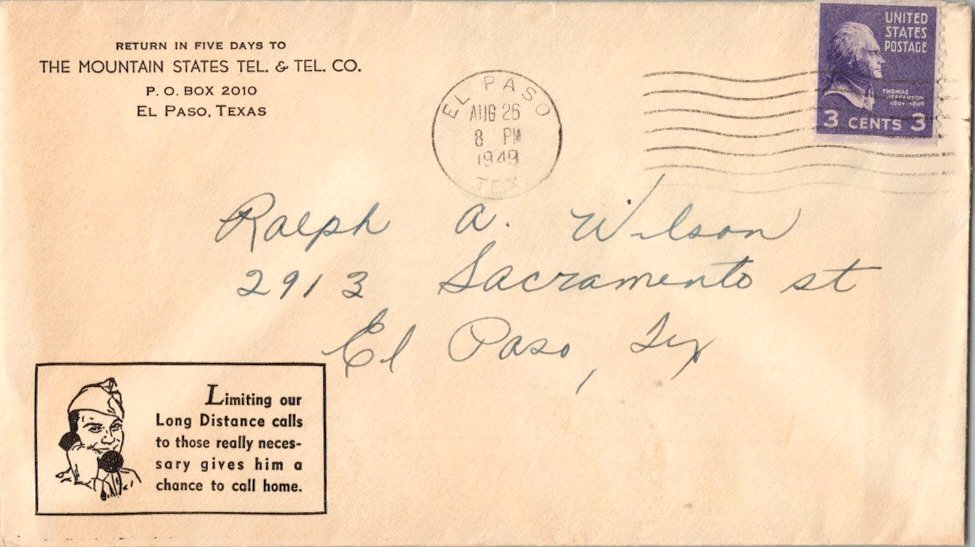 RETURN IN FIVE DAYS TO
THE MOUNTAIN STATES TEL. & TEL. CO.
P. O. BOX 2010
EL PASO, TEXAS
EL PASO
AUG 26
8 PM
1949
TEX.
UNITED
STATES
POSTAGE
THOMAS
JEFFERSON
1801-1809
3 CENTS 3
Ralph A. Wilson
2913 Sacramento st
El Paso, Tex
Limiting our
Long Distance calls
to those really neces-
sary gives him a
chance to call home.